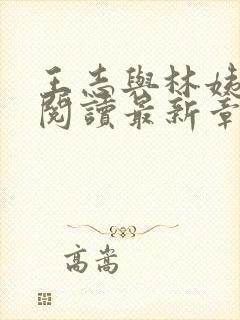 王志與林姨
閱讀最新章
高嵩